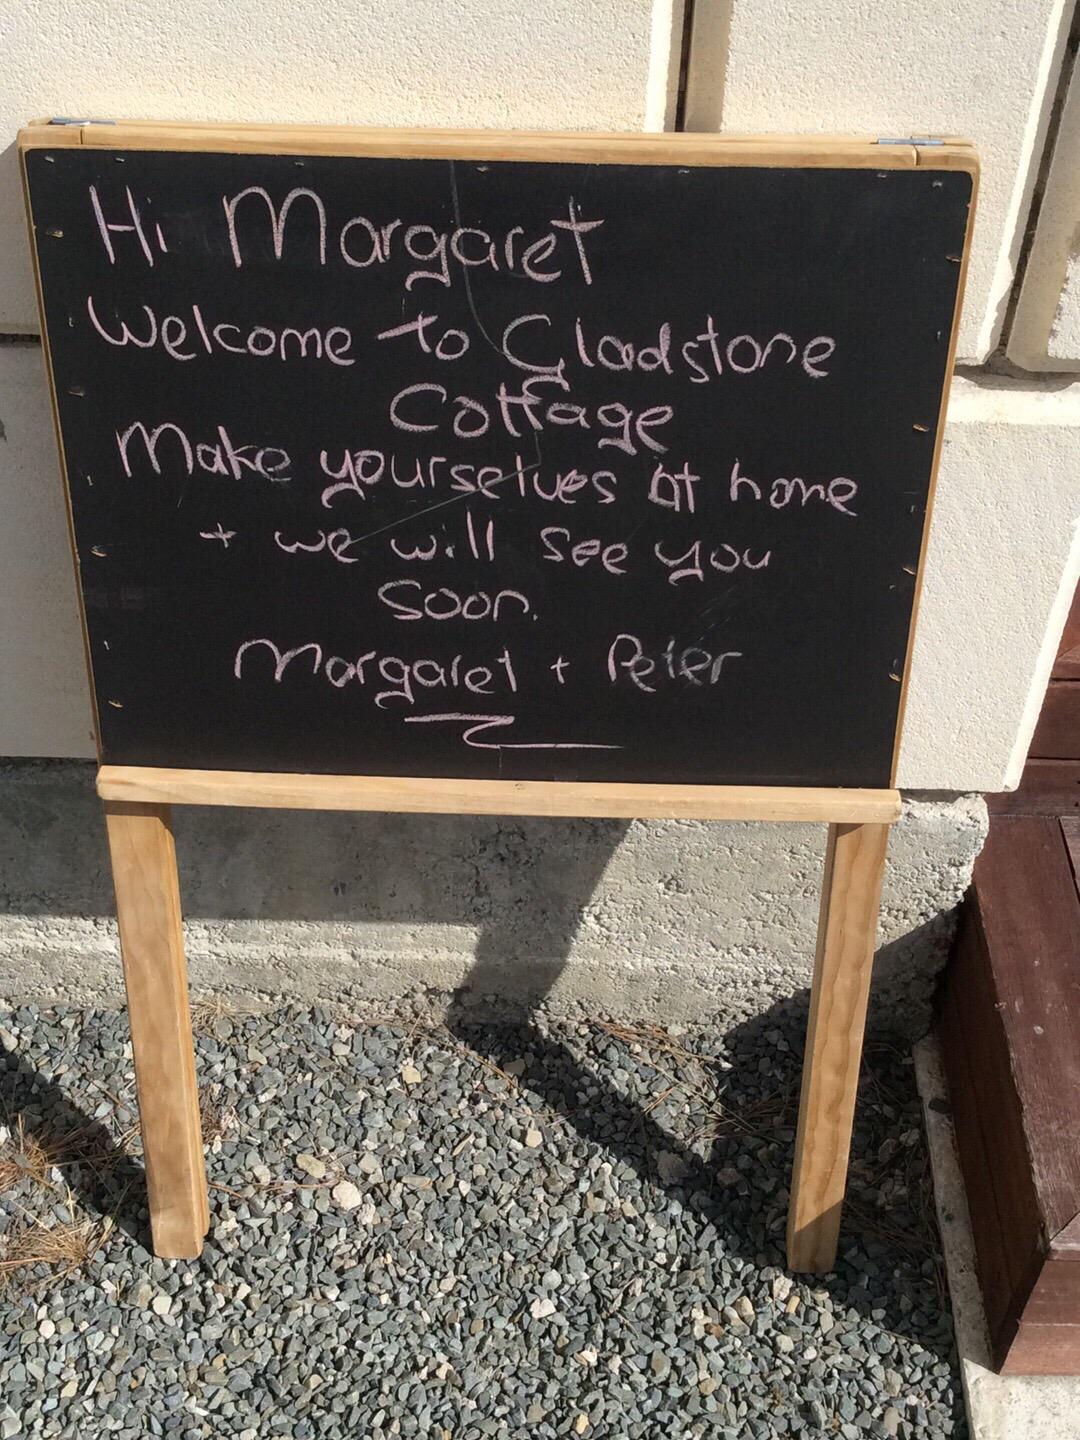 Hi Margaret
Welcome to Gladstone
Cottage
Make yourselves at home
+ we will see you
soon.
Margaret + Peter